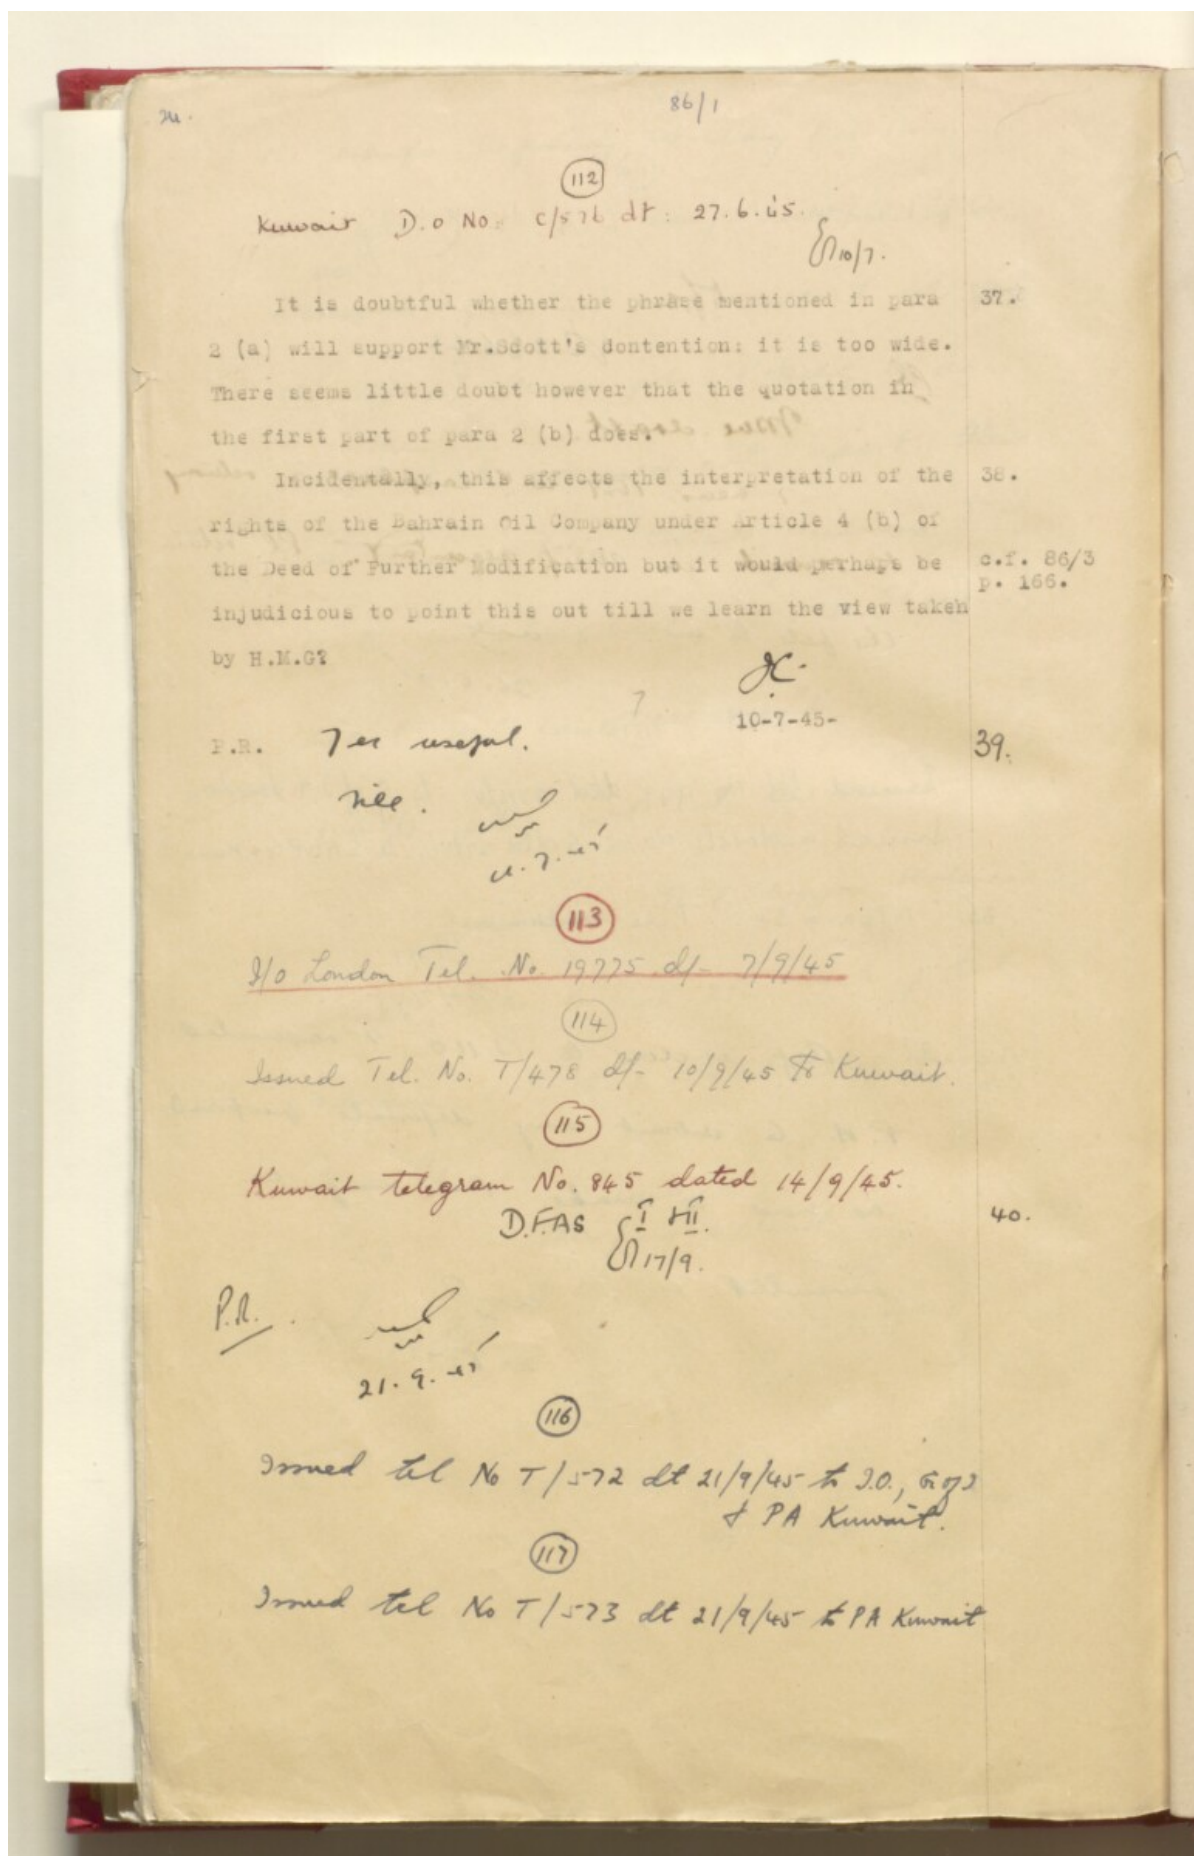 86/1
112
Kuwait D.o No: C/576 dt: 27.6.45.
10/7.
It is doubtful whether the phrase mentioned in para 37.
2 (a) will support Mr.Scott's dontention: it is too wide.
There seems little doubt however that the quotation in
the first part of para 2 (b) does.
Incidentally, this affects the interpretation of the 38.
rights of the Bahrain Oil Company under Article 4 (b) of
the Deed of Further Modification but it would perhaps be c.f. 86/3
p. 166.
injudicious to point this out till we learn the view taken
by H.M.G?
10-7-45-
P.R. Yes useful. 39.
File.
113
I/O London Tel. No. 19775 d/- 7/9/45
114
Issued Tel. No. T/478 d/- 10/9/45 to Kuwait.
115
Kuwait telegram No. 845 dated 14/9/45.
D.F.AS I & II. 40.
17/9.
P.R.
21.9.45
116
Issued tel No T/572 dt 21/9/45 to I.O., G of I
& PA Kuwait.
117
Issued tel No T/573 dt 21/9/45 to PA Kuwait